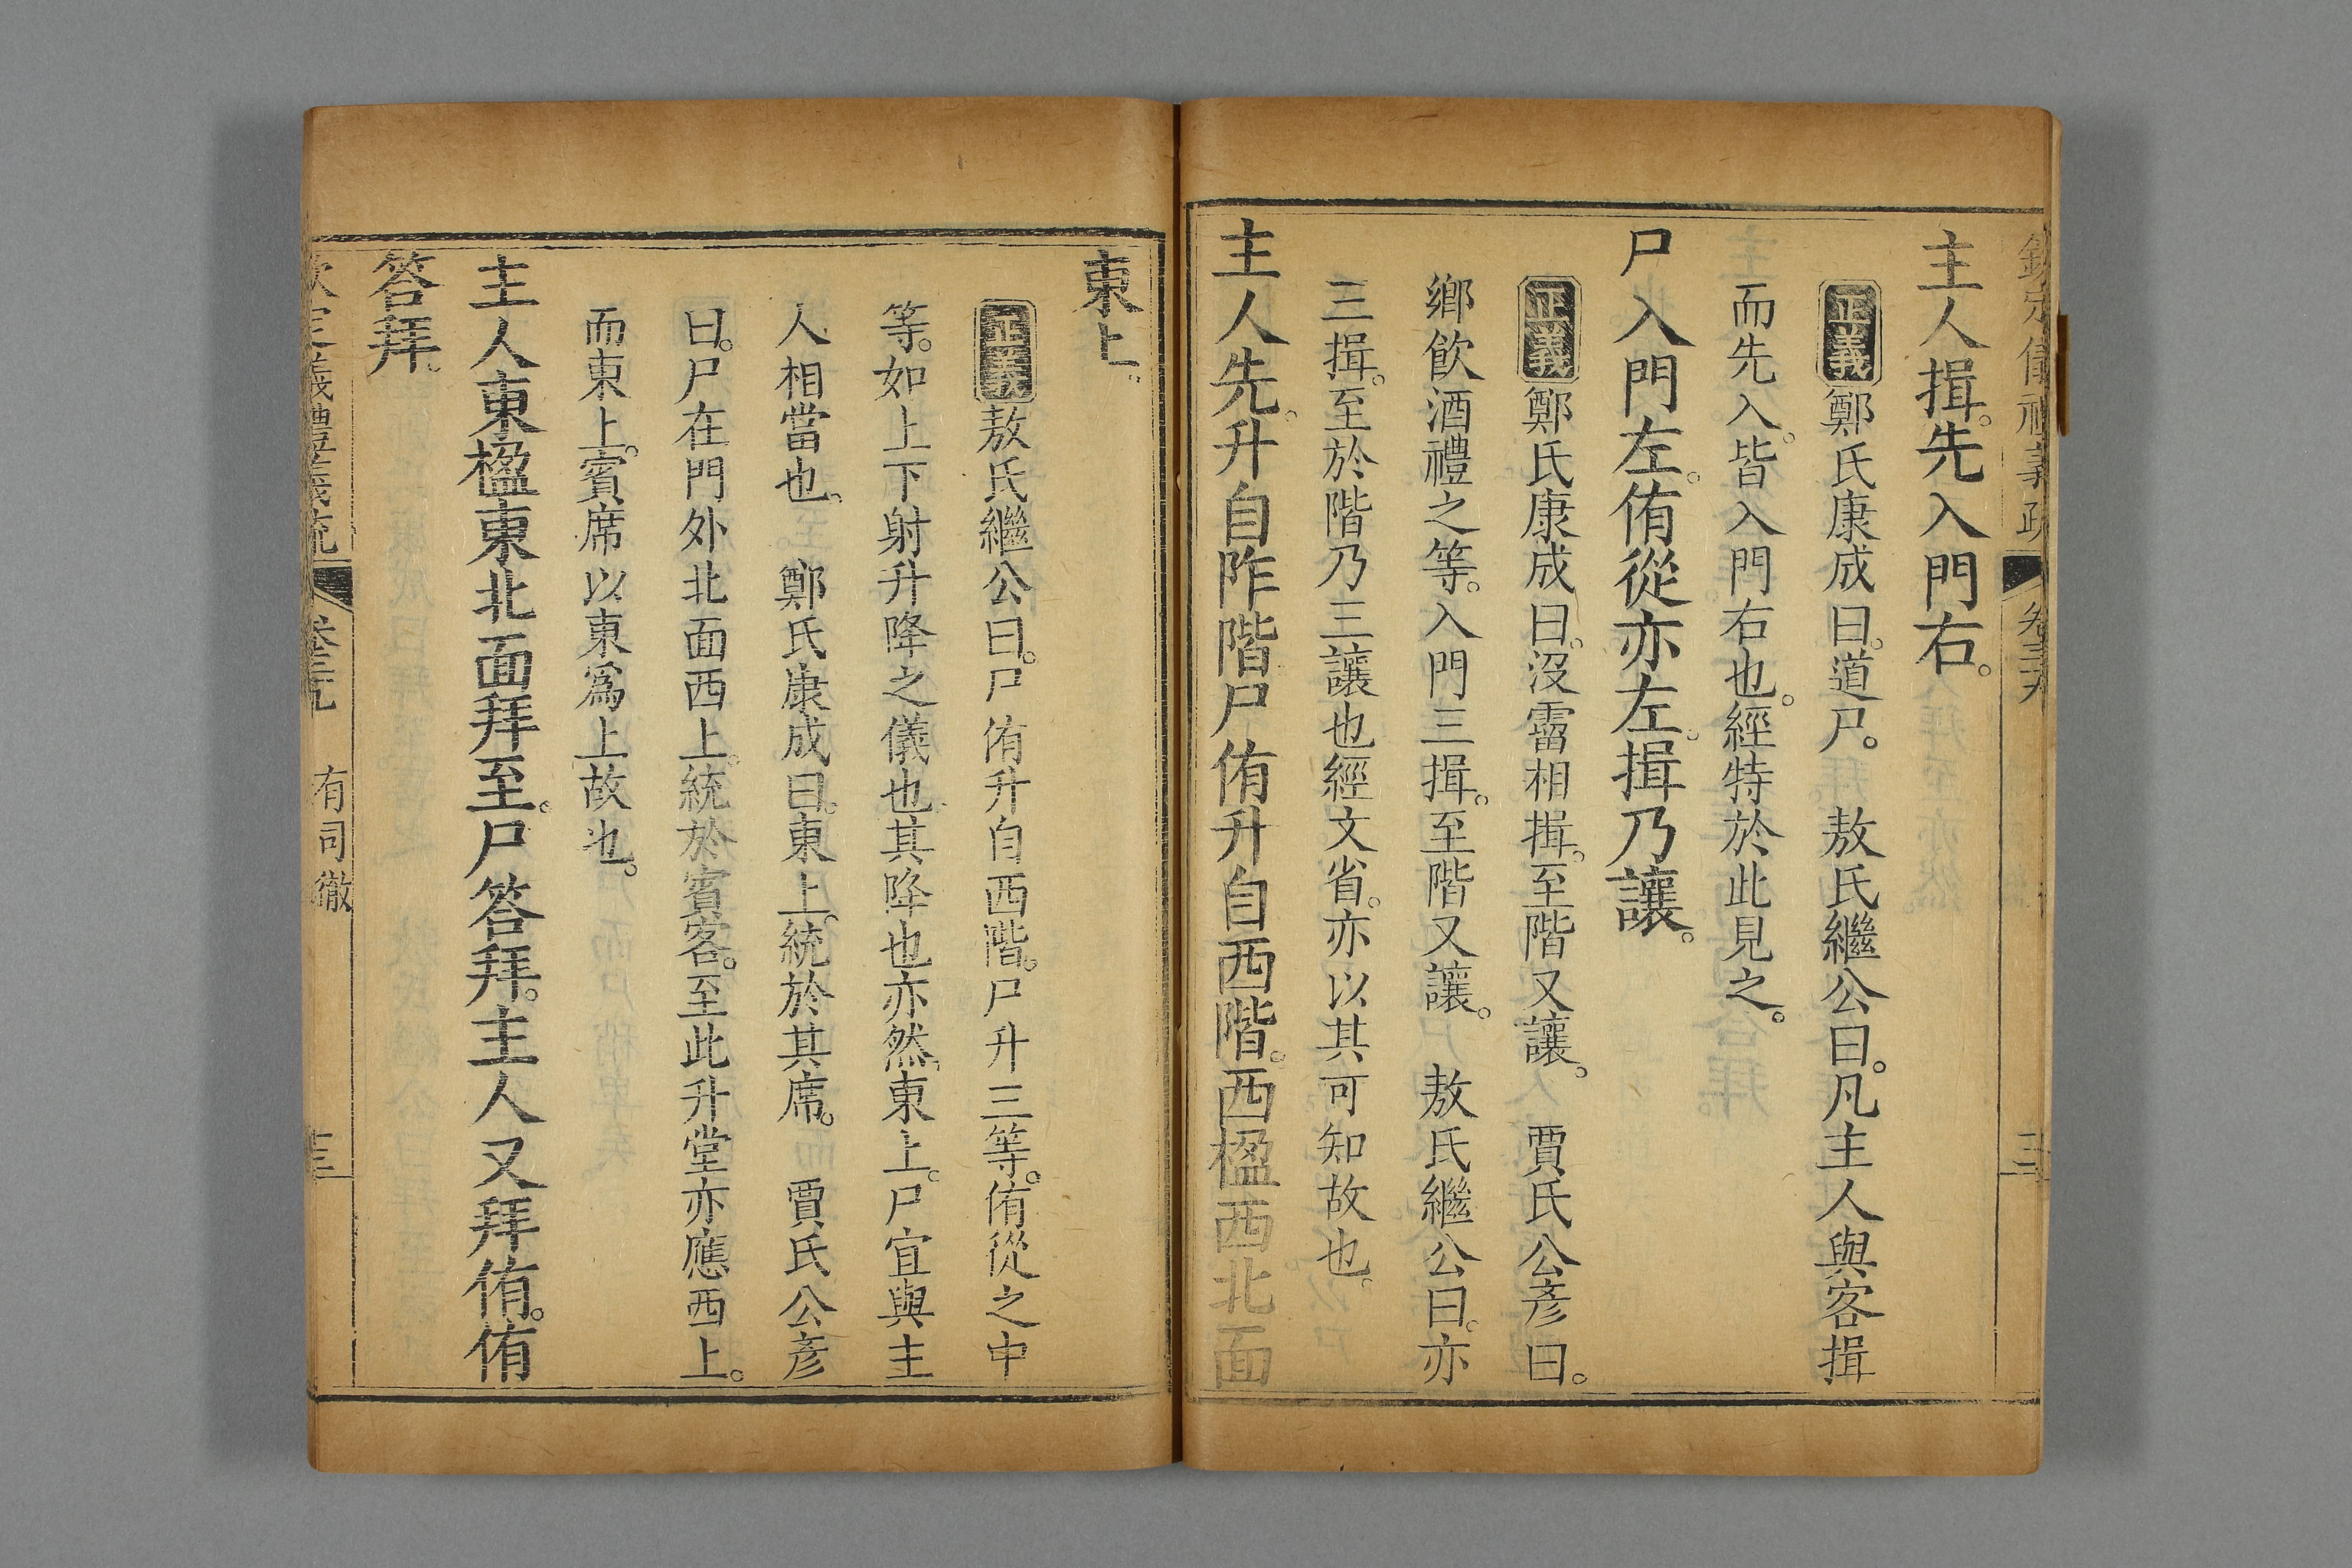 欽定儀禮義疏 卷三九 三
主人揖。先入門右。
正義鄭氏康成曰。道尸。 敖氏繼公曰。凡主人與客揖
而先入。皆入門右也。經特於此見之。
尸入門左。侑從亦左。揖乃讓。
正義鄭氏康成曰。沒霤相揖。至階又讓。 賈氏公彥曰。
鄉飲酒禮之等。入門三揖。至階又讓。 敖氏繼公曰。亦
三揖。至於階乃三讓也經文省。亦以其可知故也。
主人先。升自阼階尸侑升自西階。西楹西北面
東上。
正義敖氏繼公曰。尸侑升自西階。尸升三等。侑從之中
等。如上下射升降之儀也。其降也亦然。東上。尸宜與主
人相當也。 鄭氏康成曰。東上。統於其席。 賈氏公彥
曰。尸在門外北面西上。統於賓客。至此升堂亦應西上。
而東上。賓席以東爲上故也。
主人東楹東北面拜至。尸答拜。主人又拜侑。侑
答拜。
欽定儀禮義疏 卷三九 有司徹 三